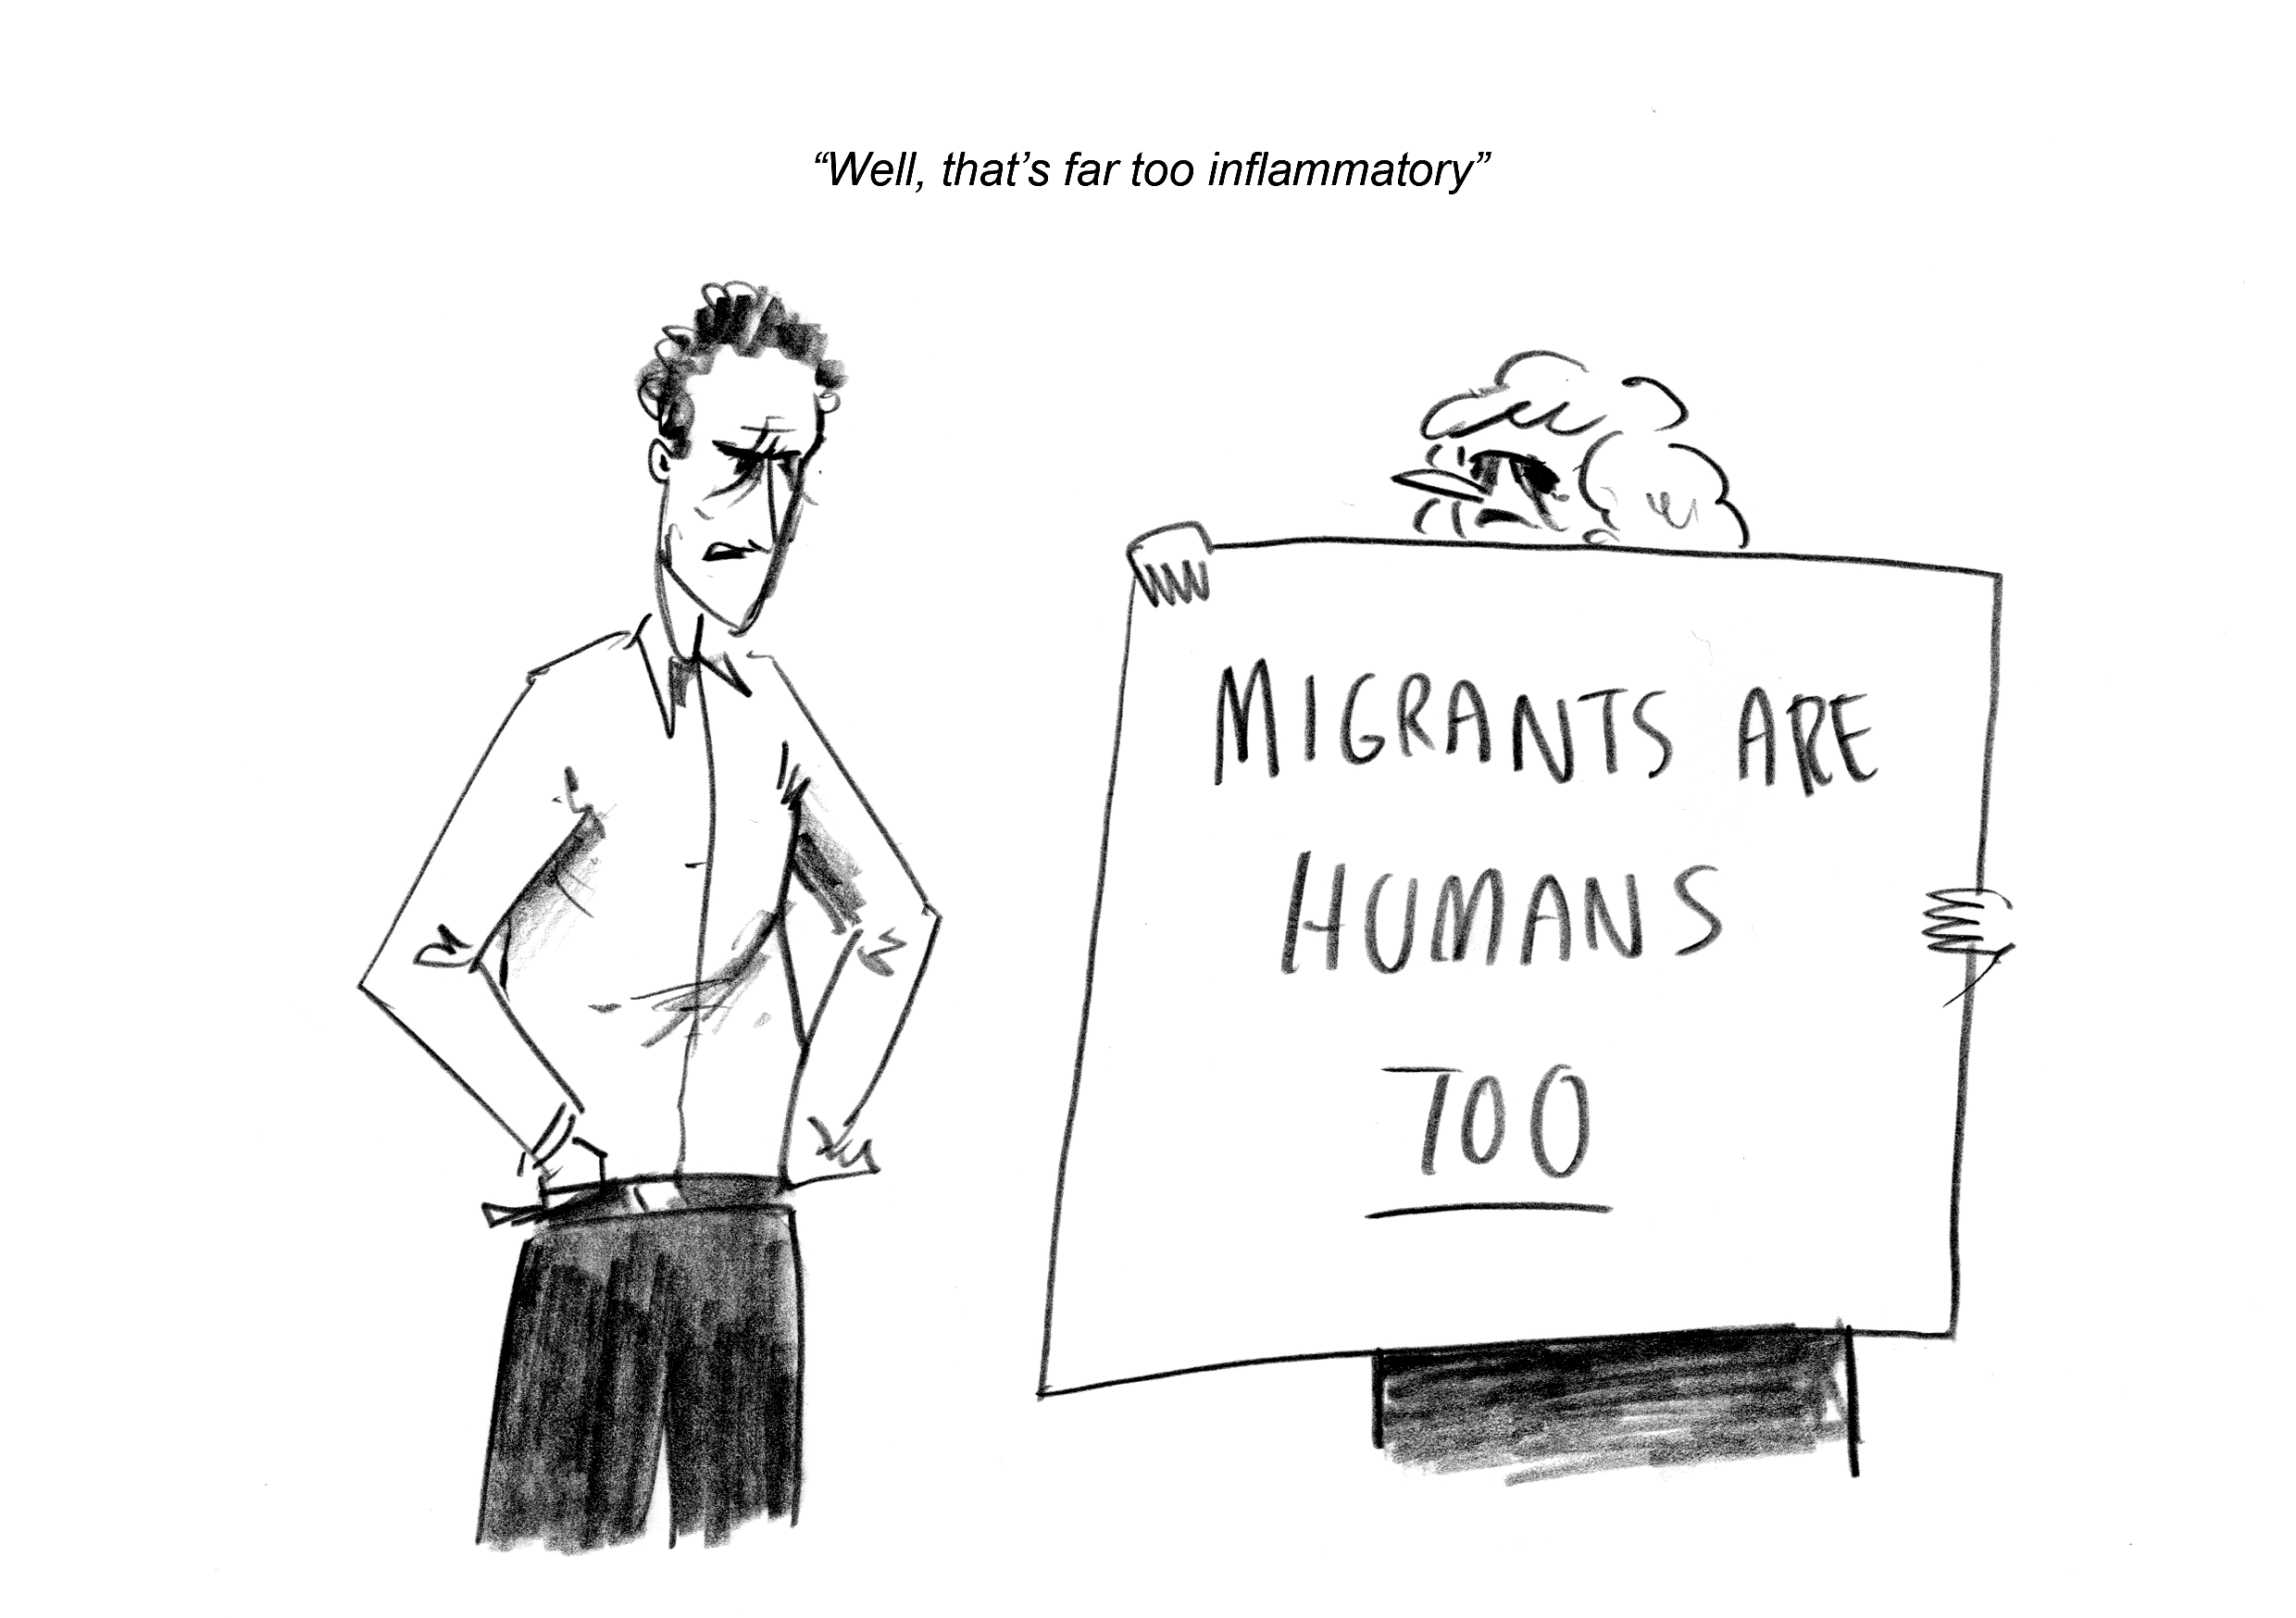 “Well, that’s far too inflammatory”
MIGRANTS ARE
HUMANS
TOO